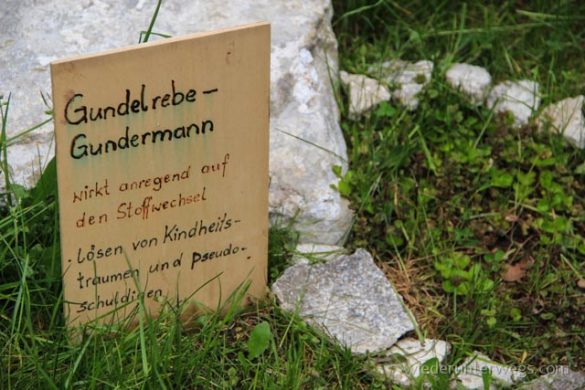 Gundelrebe-
Gundermann
wirkt anregend auf
den Stoffwechsel
· Lösen von Kindheits-
traumen und pseudo-
schuldigen
wiederunterwegs.com